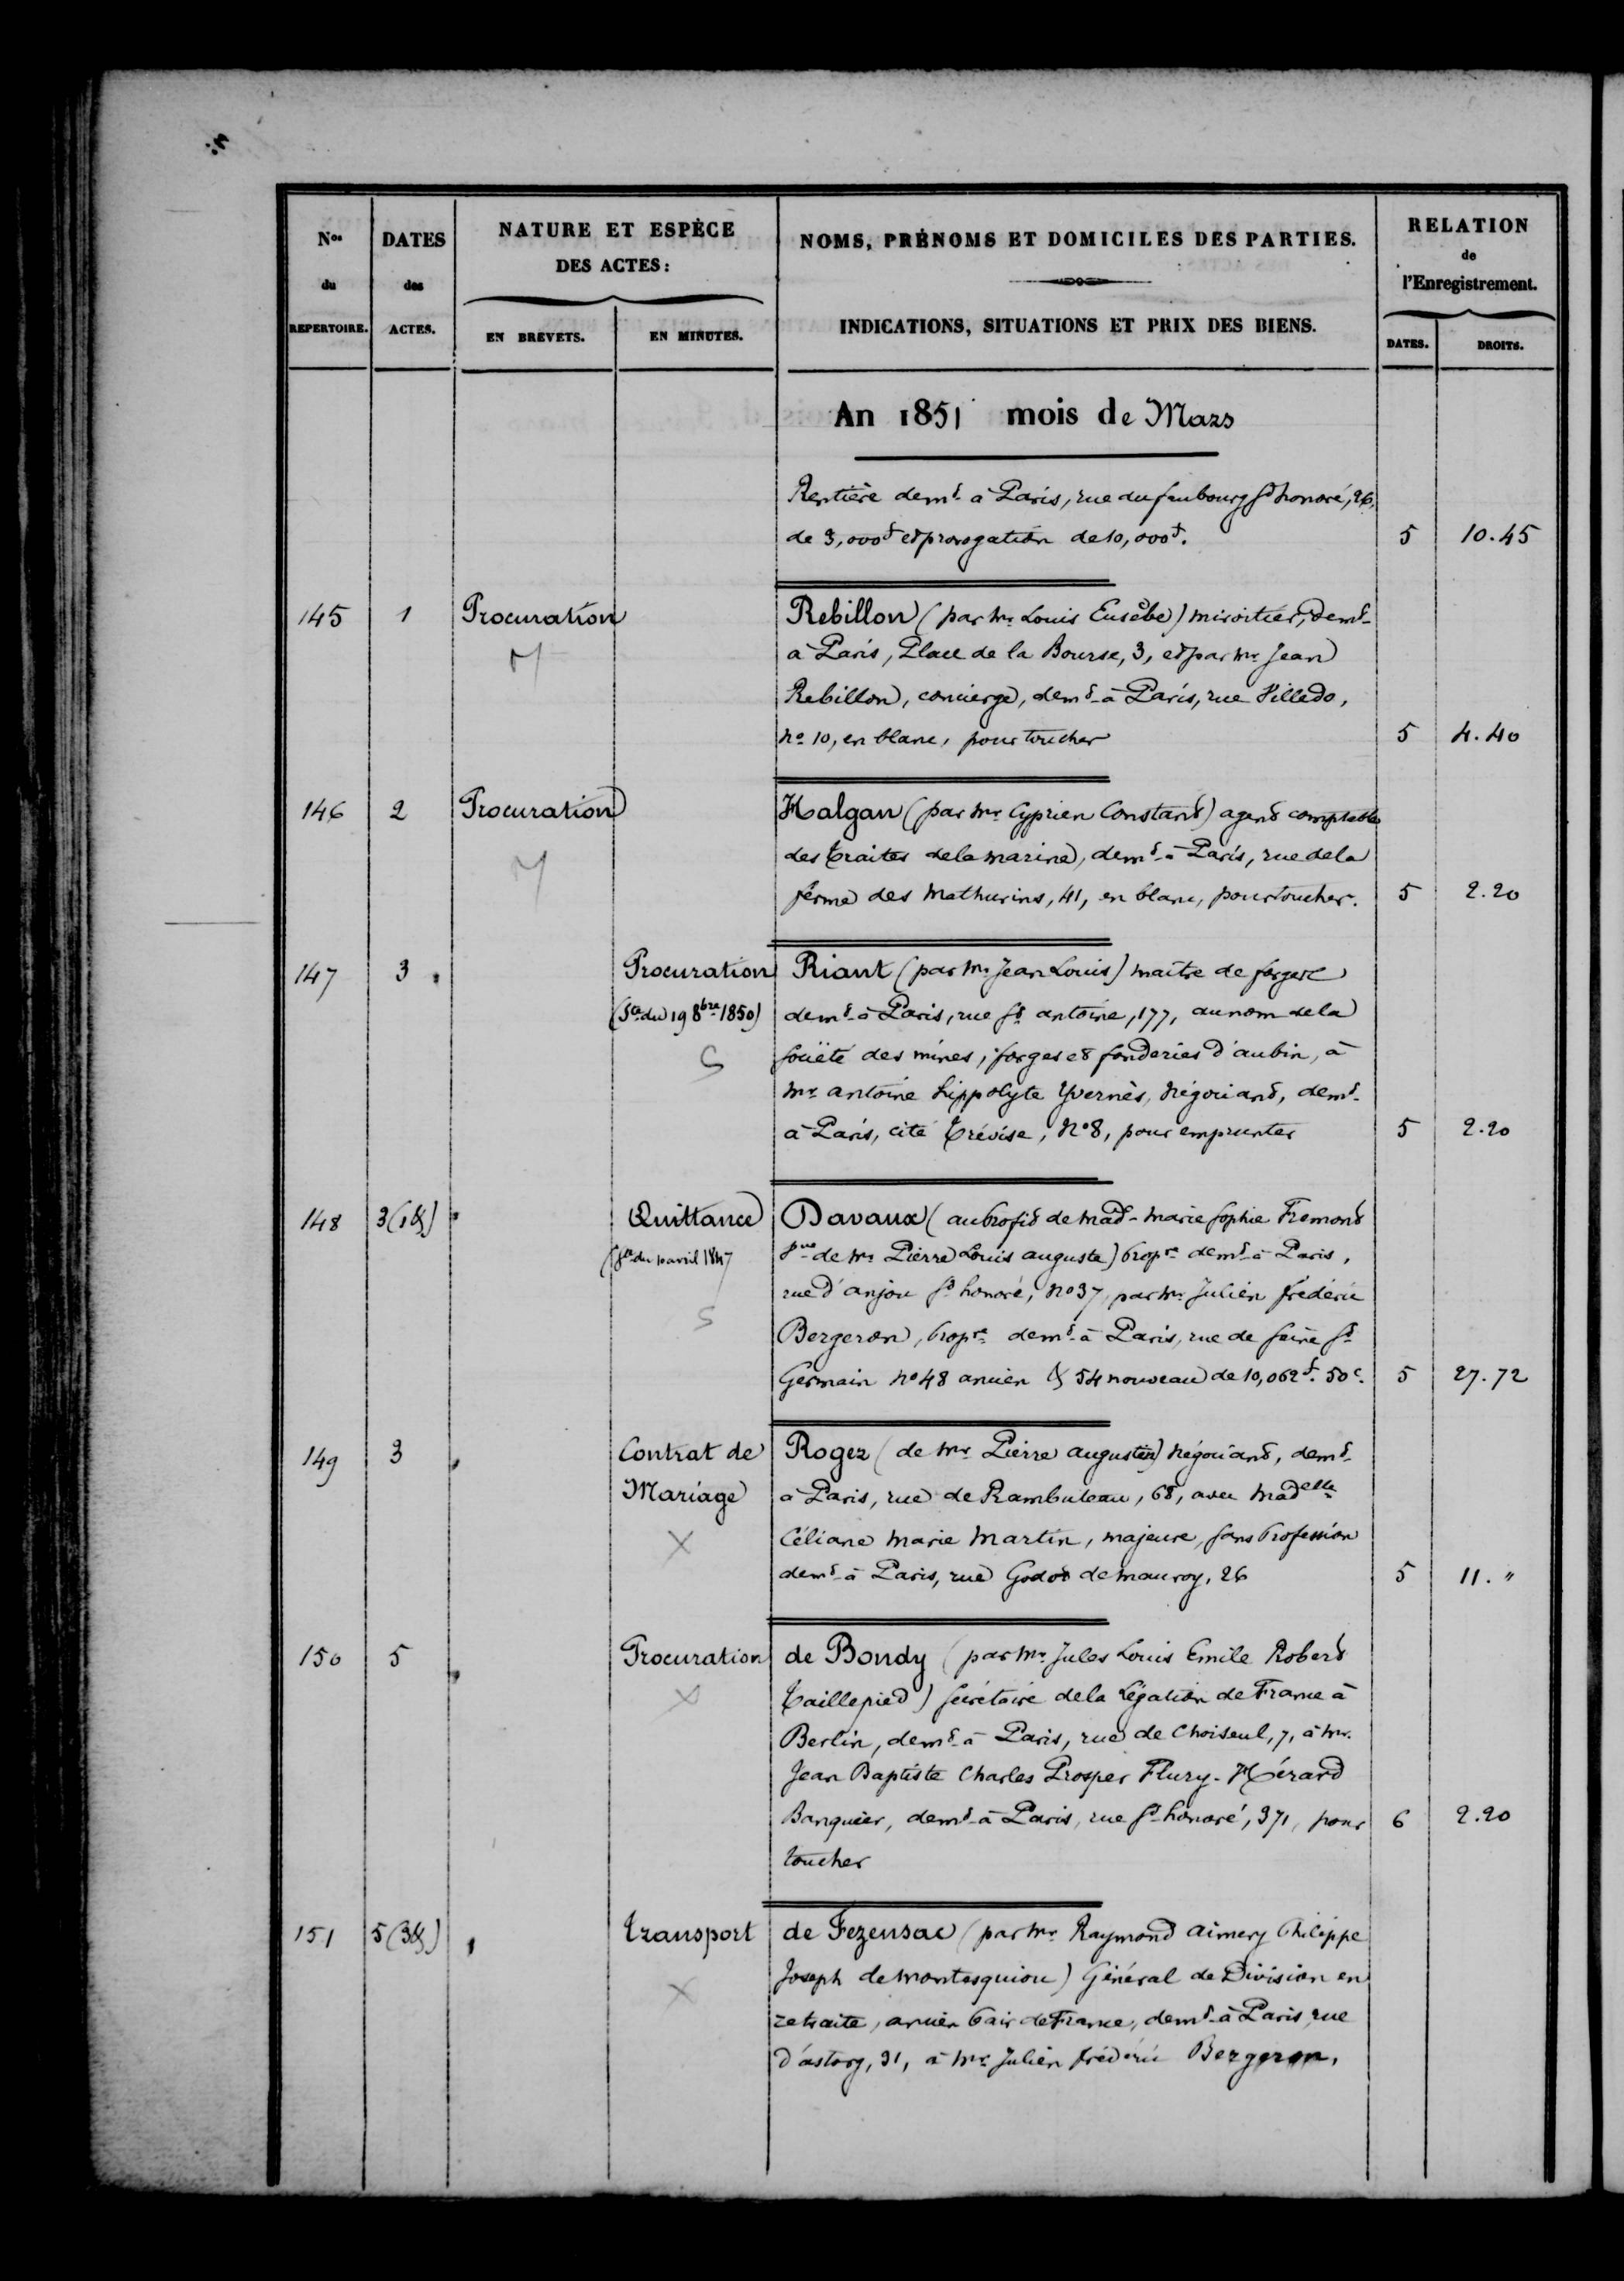 Nos du REPERTOIRE.
DATES des ACTES.
NATURE ET ESPÈCE DES ACTES:
EN BREVETS.
EN MINUTES.
NOMS, PRÉNOMS ET DOMICILES DES PARTIES.
INDICATIONS, SITUATIONS ET PRIX DES BIENS.
RELATION de l'Enregistrement.
DATES.
DROITS.
An 1851 mois de Mars
Rentière demt à Paris, rue du faubourg St honoré, 26,
de 3,000f et prorogation de 10,000f. 5 10.45
145 1 Procuration Rebillon (par Mr Louis Eusèbe) miroitier, demt
à Paris, Place de la Bourse, 3, et par Mr Jean
Rebillon, concierge, demt à Paris, rue Villedo,
No 10, en blanc, pour toucher 5 4.40
146 2 Procuration Halgan (par Mr Cyprien Constant) agent comptable
des traites de la marine, demt à Paris, rue de la
ferme des Mathurins, 41, en blanc, pour toucher. 5 2.20
147 3 Procuration Riant (par Mr Jean Louis) maître de forges
(Ste du 19 8bre 1850) demt à Paris, rue St antoine, 177, au nom de la
Société des mines, forges et fonderies d'aubin, à
Mr antoine hippolyte Yvernès, Négociant, demt
à Paris, cité Trévise, No 8, pour emprunter 5 2.20
148 3(1&) Quittance Davaux (au profit de Made Marie Sophie Fremont
(Ste du 10 avril 1847 Vve de Mr Pierre Louis auguste) propre demt à Paris,
rue d'anjou St honoré, No 37, par Mr Julien frédéric
Bergeron, propre demt à Paris, rue de Seine St
Germain No 48 ancien & 54 nouveau de 10,062f. 50c. 5 27.72
149 3 Contrat de Rogez (de Mr Pierre augustin) Négociant, demt
Mariage à Paris, rue de Rambuteau, 68, avec Madelle
Céliane Marie Martin, majeure, sans profession
demt à Paris, rue Godot de Mauroy, 26 5 11. "
150 5 Procuration de Bondy (par Mr Jules Louis Emile Robert
Taillepied) Secrétaire de la Légation de France à
Berlin, demt à Paris, rue de Choiseul, 7, à Mr.
Jean Baptiste Charles Prosper Flury-Hérard
Banquier, demt à Paris, rue St honoré, 371, pour 6 2.20
toucher
151 5(3&) Transport de Fezensac (par Mr Raymond Aimery Philippe
Joseph de Montesquiou) Général de Division en
retraite, ancien Pair de France, demt à Paris, rue
d'astorg, 31, à Mr Julien frédéric Bergeron,